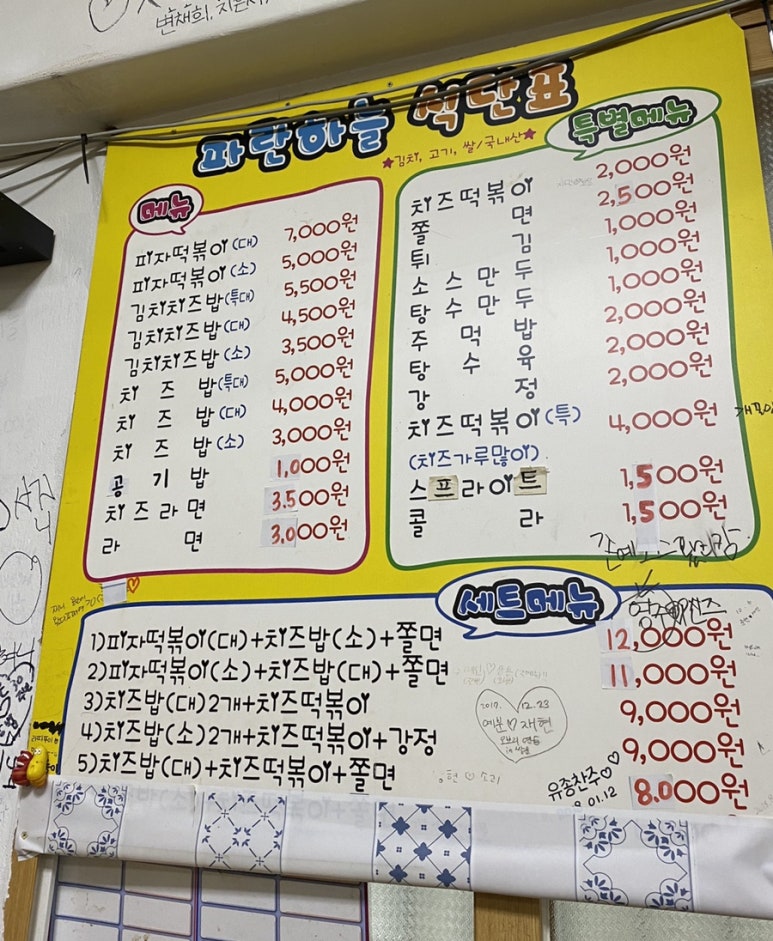 파란하늘 식단표
★김치, 고기, 쌀/국내산★
메뉴
피자떡볶이(대) 7,000원
피자떡볶이(소) 5,000원
김치치즈밥(특대) 5,500원
김치치즈밥(대) 4,500원
김치치즈밥(소) 3,500원
치즈밥(특대) 5,000원
치즈밥(대) 4,000원
치즈밥(소) 3,000원
공기밥 1,000원
치즈라면 3.500원
라면 3,000원
특별메뉴
치즈떡볶이 2,000원
쫄면 2,500원
튀김 1,000원
소스만두 1,000원
탕수만두 1,000원
주먹밥 2,000원
탕수육 2,000원
강정 2,000원
치즈떡볶이(특) 4,000원
(치즈가루많이)
스프라이트 1,500원
콜라 1,500원
세트메뉴
1)피자떡볶이(대)+치즈밥(소)+쫄면 12,000원
2)피자떡볶이(소)+치즈밥(대)+쫄면 11,000원
3)치즈밥(대)2개+치즈떡볶이 9,000원
4)치즈밥(소)2개+치즈떡볶이+강정 9,000원
5)치즈밥(대)+치즈떡볶이+쫄면 8.000원
2017. 12.23
유종찬주♡♡
01.12